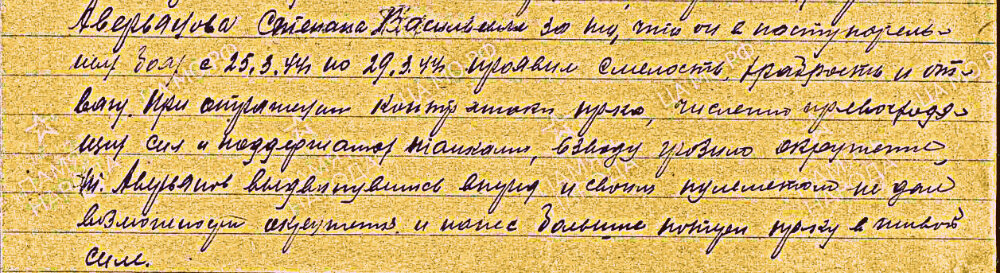 Аверьянова Степана Васильевича за то, что он в наступатель-
ных боях с 25.3.44г по 29.3.44г проявил смелость, храбрость и от-
вагу. При отражении контратаки пр-ка, численно превосходя-
щих сил и поддержанной танками, взводу грозило окружение,
т. Аверьянов выдвинувшись вперед и своим пулеметом не дал
возможности окружения и нанес большие потери пр-ку в живой
силе.